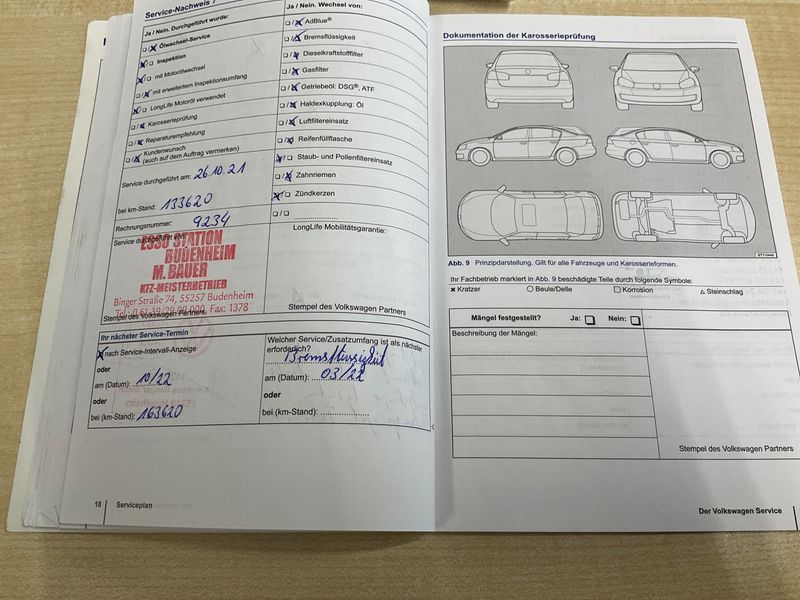 Service-Nachweis 7
Ja / Nein. Durchgeführt wurde:
Ja / Nein. Wechsel von:
Ölwechsel-Service
Inspektion
mit Motorölwechsel
mit erweitertem Inspektionsumfang
LongLife Motoröl verwendet
Karosserieprüfung
Reparaturempfehlung
Kundenwunsch
(auch auf dem Auftrag vermerken)
Service durchgeführt am: 26.10.21
bei km-Stand: 133620
Rechnungsnummer: 9234
Service durchgeführt von:
ESSO STATION
BUDENHEIM
M. BAUER
KFZ-MEISTERBETRIEB
Binger Straße 74, 55257 Budenheim
Fax: 1378
Stempel des Volkswagen Partners.
AdBlue®
Bremsflüssigkeit
Dieselkraftstofffilter
Gasfilter
Getriebeöl: DSG®, ATF
Haldexkupplung: Öl
Luftfiltereinsatz
Reifenfüllflasche
Staub- und Pollenfiltereinsatz
Zahnriemen
Zündkerzen
LongLife Mobilitätsgarantie:
Stempel des Volkswagen Partners
Ihr nächster Service-Termin
nach Service-Intervall-Anzeige
oder
am (Datum): 10/22
oder
bei (km-Stand): 163620
Welcher Service/Zusatzumfang ist als nächster
erforderlich?
Bremsflüssigkeit
am (Datum): 03/22
oder
bei (km-Stand):
18 Serviceplan
Dokumentation der Karosserieprüfung
BTT-0449
Abb. 9 Prinzipdarstellung. Gilt für alle Fahrzeuge und Karosserieformen.
Ihr Fachbetrieb markiert in Abb. 9 beschädigte Teile durch folgende Symbole:
× Kratzer ○ Beule/Delle □ Korrosion △ Steinschlag
Mängel festgestellt? Ja: Nein:
Beschreibung der Mängel:
Stempel des Volkswagen Partners
Der Volkswagen Service